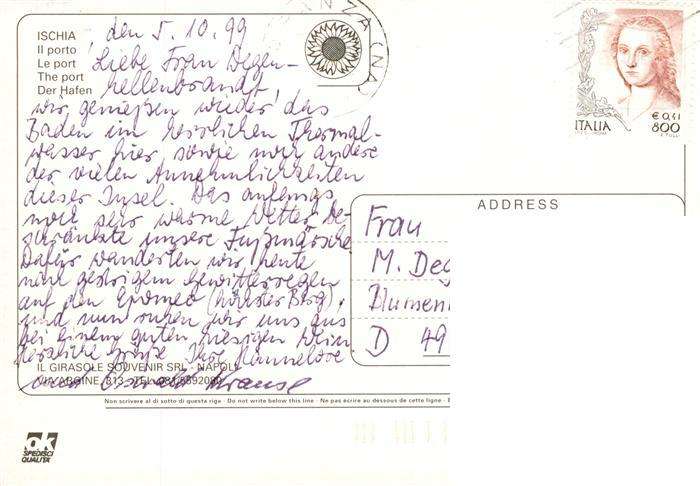 ISCHIA
Il porto
Le port
The port
Der Hafen
, den 5. 10. 99
Liebe Frau Degen-
hellenbrandt,
wir genießen wieder das
Baden im herrlichen Thermal-
wasser hier sowie andere
der vielen Annehmlichkeiten
dieser Insel. Das anfangs
noch sehr warme Wetter be-
schränkte unsere Fußmärsche.
Dafür wanderten wir heute
nach gestrigem Gewitterregen
auf den Epomeo (höchster Berg),
und nun ruhen wir uns aus
bei einem guten hiesigen Wein
Herzliche Grüße Ihre Hannelore
und Krause
IL GIRASOLE SOUVENIR SRL - NAPOLI
VIA ARGINE, 313 - TEL.
ITALIA
€ 0,41
800
ADDRESS
Frau
M. Deg
Blumen
D 49
Non scrivere al di sotto di questa riga - Do not write below this line - Ne pas écrire au dessous de cette ligne -
ok
SPEDISCI
QUALITÀ